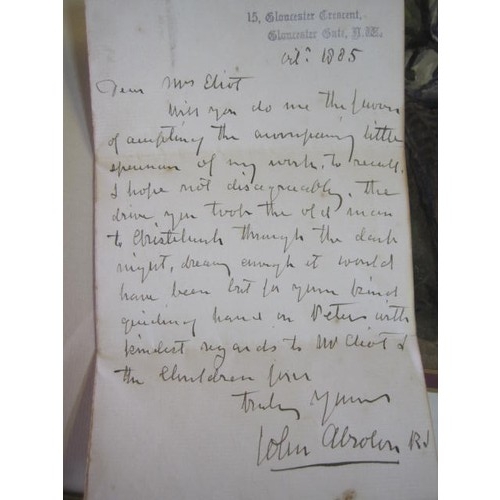 15, Gloucester Crescent,
Gloucester Gate, N.W.
Oct. 1885
Dear Mrs Eliot
Will you do me the favour
of accepting the accompanying little
specimen of my work, to recall,
I hope not disagreeably, the
drive you took the old man
to Christchurch through the dark
night, dreary enough it would
have been but for your kind
guiding hand on Peters with
kindest regards to Mr Eliot &
the Children from
truly Yours
John Absolon RI